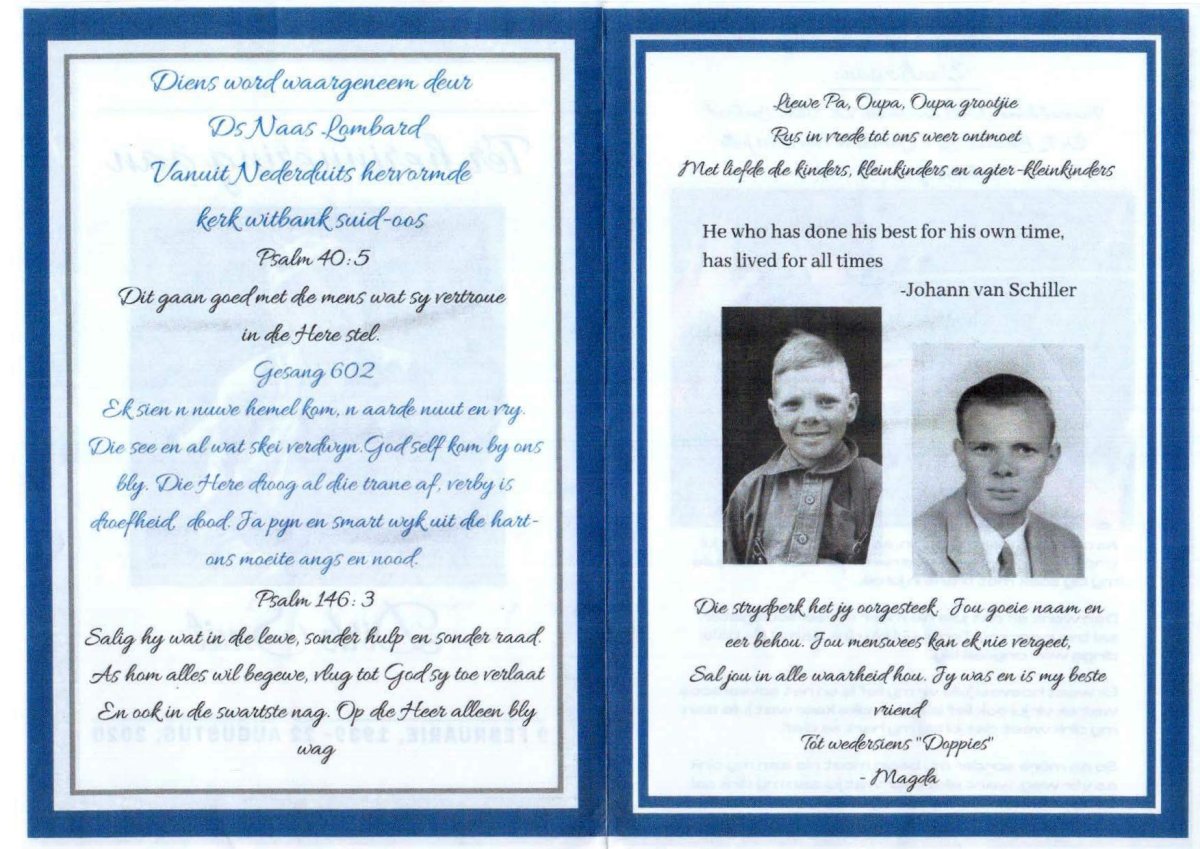 Diens word waargeneem deur
Ds Naas Lombard
Vanuit Nederduits hervormde
kerk witbank suid-oos
Psalm 40:5
Dit gaan goed met die mens wat sy vertroue
in die Here stel.
Gesang 602
Ek sien n nuwe hemel kom, n aarde nuut en vry.
Die see en al wat skei verdwyn.God self kom by ons
bly. Die Here droog al diie trane af, verby is
droefheid, dood. Ja pyn en smart wyk uit die hart-
ons moeite angs en nood.
Psalm 146:3
Salig hy wat in die lewe, sonder hulp en sonder raad.
As hom alles wil begewe, vlug tot God sy toe verlaat
En ook in die swartste nag. Op die Heer alleen bly
wag
Liewe Pa, Oupa, Oupa grootjie
Rus in vrede tot ons weer ontmoet
Met liefde die kinders, kleinkinders en agter-kleinkinders
He who has done his best for his own time,
has lived for all times
-Johann van Schiller
Die strydperk het jy oorgesteek. Jou goeie naam en
eer behou. Jou menswees kan ek nie vergeet,
Sal jou in alle waarheid hou. Jy was en is my beste
vriend
Tot wedersiens "Doppies"
- Magda